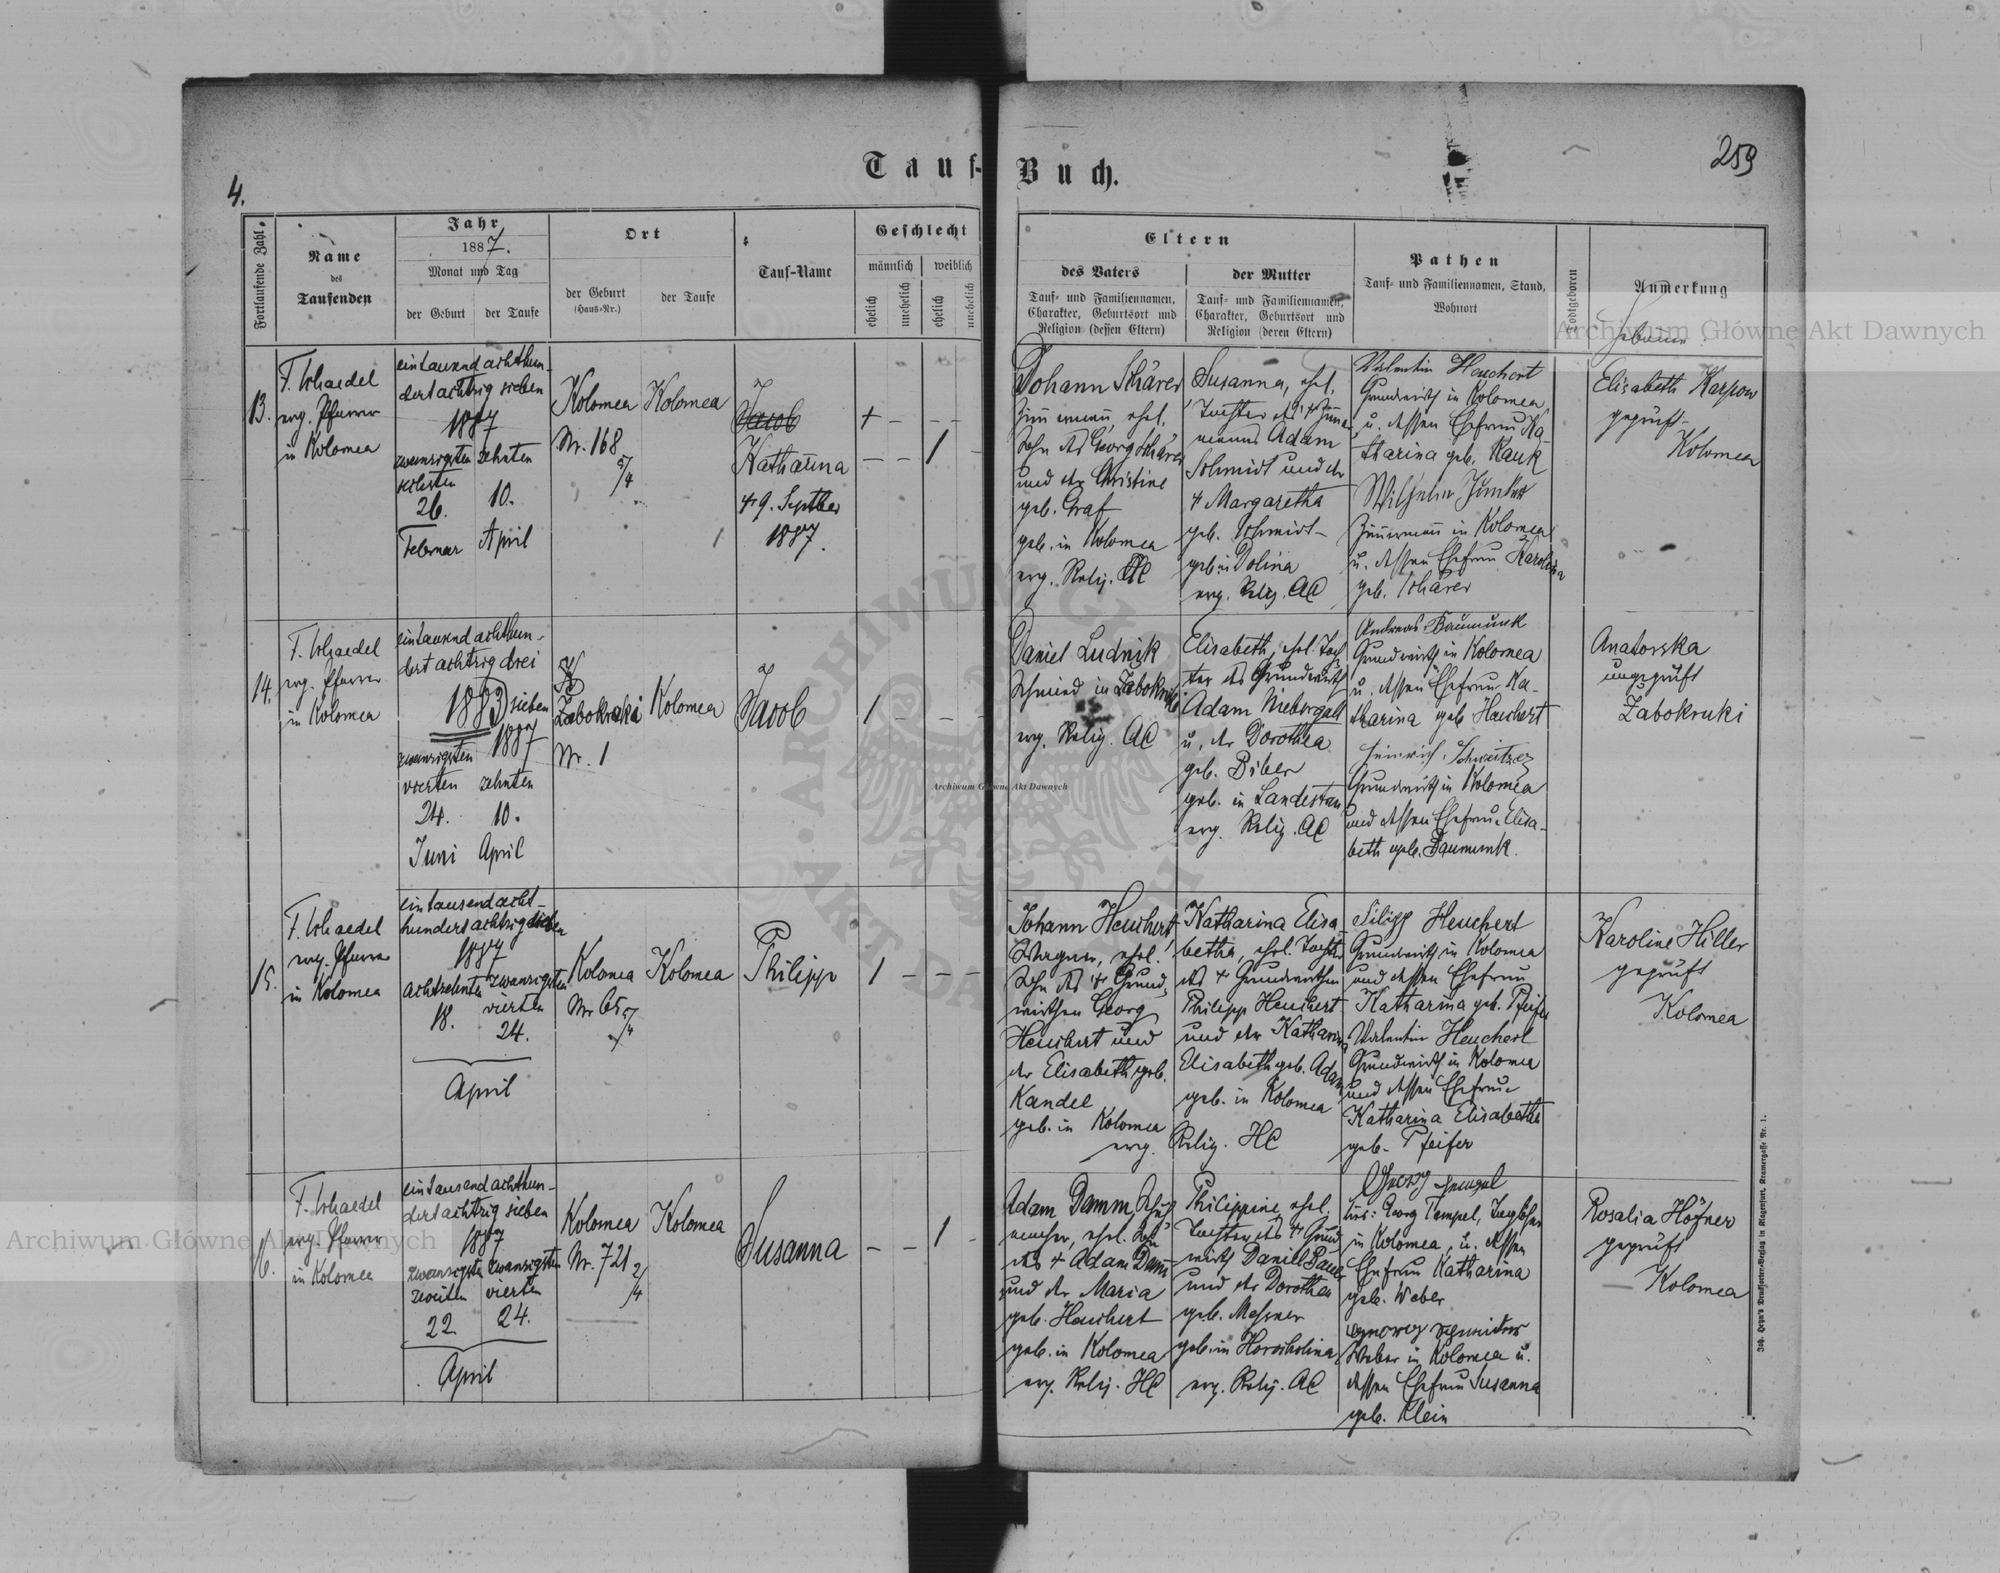 4.
Tauf-
Buch.
259
Fortlaufende Zahl.
Name
des
Taufenden
Jahr
1887.
Monat und Tag
der Geburt
der Taufe
Ort
der Geburt
(Haus-Nr.)
der Taufe
Tauf-Name
Geschlecht
männlich
weiblich
ehelich
unehelich
ehelich
unehelich
Eltern
des Vaters
Tauf- und Familiennamen,
Charakter, Geburtsort und
Religion (dessen Eltern)
der Mutter
Tauf- und Familiennamen,
Charakter, Geburtsort und
Religion (deren Eltern)
Pathen
Tauf- und Familiennamen, Stand,
Wohnort
Todtgeboren
Anmerkung
13.
evg. Pfarrer
in Kolomea
eintausend achthun-
dert achtzig sieben
1887
zwanzigsten zehnten
sechsten
26. 10.
Februar April
Kolomea
Nr. 168
Kolomea
Jacob
Katharina
† 9. Septber
1887.
+ - - -
- - 1 -
Johann Schärer
Zimmermann, ehel.
Sohn des Georg Schärer
und der Christine
geb. Graf
geb. in Kolomea
evg. Relig. HC
Susanna, ehel.
Tochter des † Zimmer
manns Adam
Schmidt und der
† Margaretha
geb. Schmidt
geb. in Dolina
evg. Relig. AC
Valentin Heuchert
Grundwirth in Kolomea
u. dessen Ehefrau Ka-
tharina geb. Kauk
Wilhelm Junker
Zimmermann in Kolomea
u. dessen Ehefrau Karolina
geb. Schärer
Elisabeth Karpow
geprüft
Kolomea
14.
evg. Pfarrer
in Kolomea
eintausend achthun-
dert achtzig drei
1883 sieben
1887
zwanzigsten
vierten zehnten
24. 10.
Juni April
Zabokruki
Nr. 1
Kolomea
Jacob
1 - - -
Daniel Ludnik
Schmied in Zabokruki
evg. Relig. AC
Elisabeth, ehel. Toch
ter des Grundwirth
Adam Niebergall
u. der Dorothea
geb. Biber
geb. in Landestreu
evg. Relig. AC
Andreas Baumunk
Grundwirth in Kolomea
u. dessen Ehefrau Ka-
tharina geb. Heuchert
Heinrich Schweitzer
Grundwirth in Kolomea
und dessen Ehefrau Elisa-
beth geb. Baumunk.
Anatowska
ungeprüft
Zabokruki
15.
evg. Pfarrer
in Kolomea
eintausend acht-
hundert achtzig sieben
1887
achtzehnten zwanzigsten
vierten
18. 24.
April
Kolomea
Nr. 65
Kolomea
Philipp
1 - - -
Johann Heuchert,
Wagner, ehel.
Sohn des † Grund-
wirthen Georg
Heuchert und
der Elisabeth geb.
Kandel
geb. in Kolomea
Katharina Elisa-
betha, ehel. Tochter
des † Grundwirthen
Philipp Heuchert
und der Katharina
Elisabeth geb. Adam
geb. in Kolomea
evg. Relig. HC
Filipp Heuchert
Grundwirth in Kolomea
und dessen Ehefrau
Katharina geb. Pfeifer
Valentin Heuchert
Grundwirth in Kolomea
und dessen Ehefrau
Katharina Elisabetha
geb. Pfeifer
Karoline Hiller
geprüft
Kolomea
16.
evg. Pfarrer
in Kolomea
eintausend achthun-
dert achtzig sieben
1887
zwanzigsten zwanzigsten
zweiten vierten
22 24.
April
Kolomea
Nr. 721
Kolomea
Susanna
- - 1 -
Adam Damm, Schuh
macher, ehel. Sohn
des † Adam Damm
und der Maria
geb. Heuchert
geb. in Kolomea
evg. Relig. HC
Philippine, ehel.
Tochter des † Grund
wirth Daniel Bauer
und der Dorothea
geb. Messner
geb. in Horocholina
evg. Relig. AC
Georg Tempel, Taglöhner
in Kolomea, u. dessen
Ehefrau Katharina
geb. Weber
Georg Schneider
Weber in Kolomea u.
dessen Ehefrau Susanna
geb. Klein
Rosalia Höfner
geprüft
Kolomea
Archiwum Główne Akt Dawnych
Archiwum Główne Akt Dawnych
Archiwum Główne Akt Dawnych